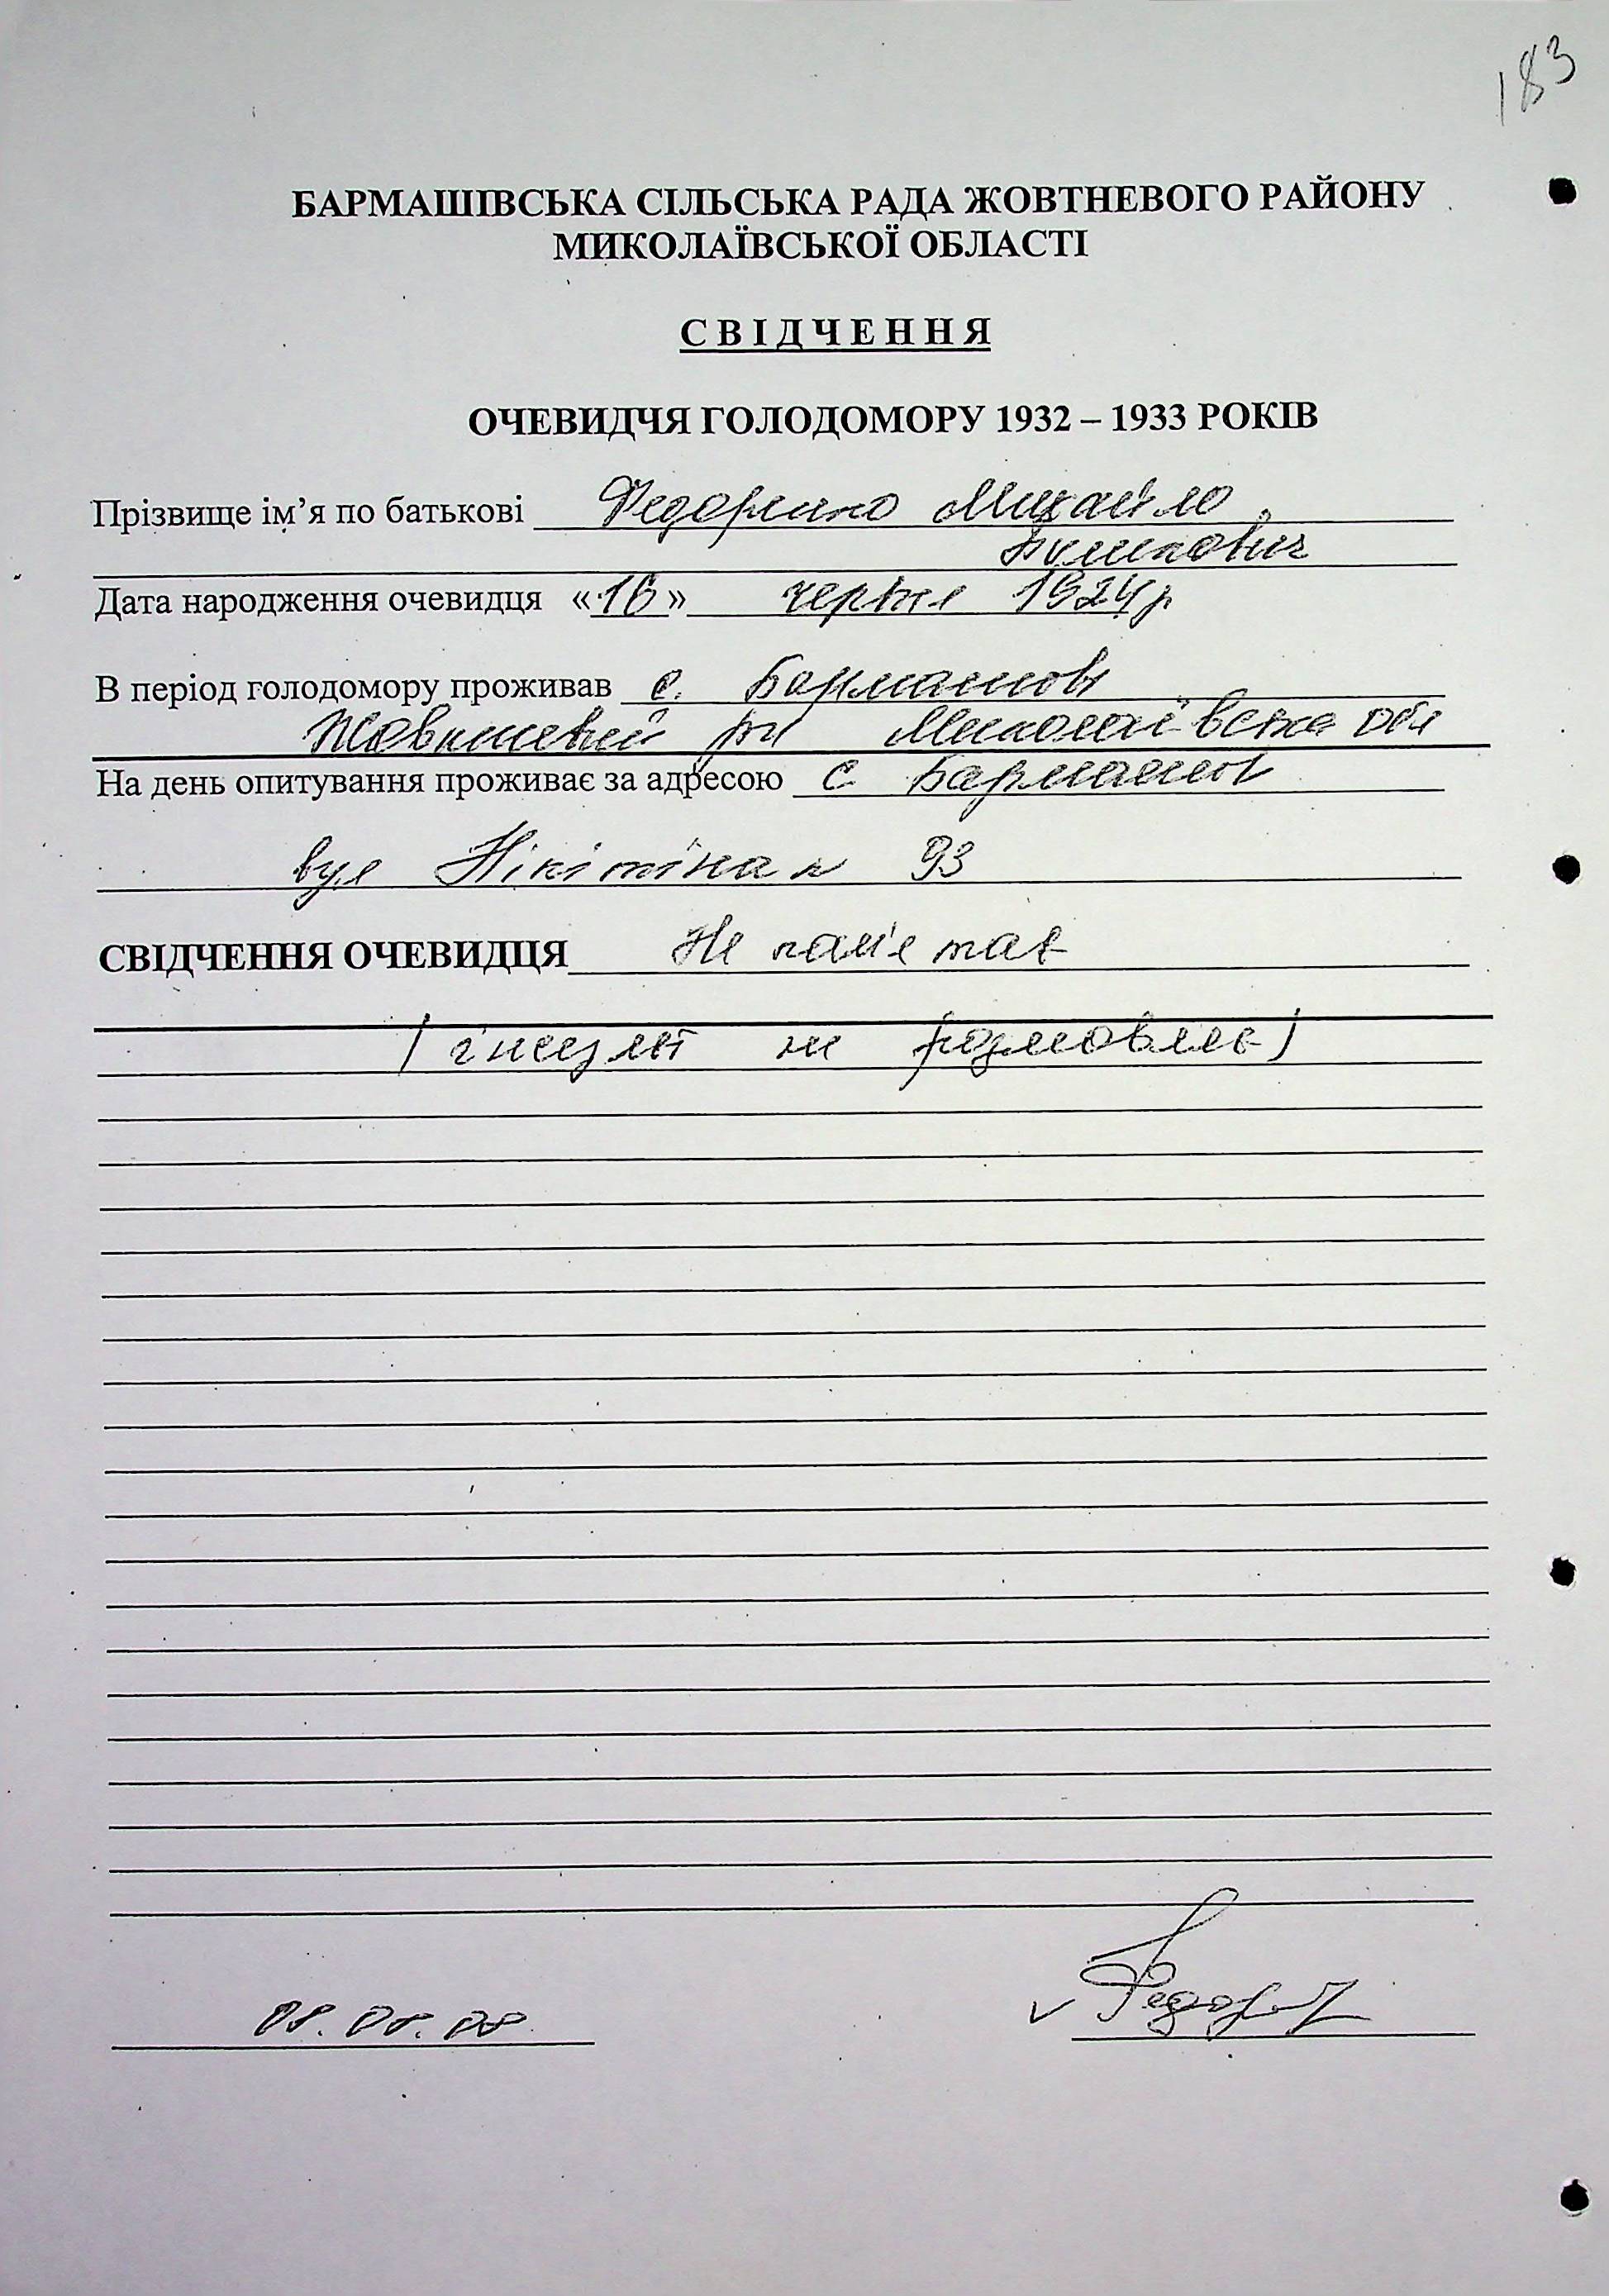 183
БАРМАШІВСЬКА СІЛЬСЬКА РАДА ЖОВТНЕВОГО РАЙОНУ
МИКОЛАЇВСЬКОЇ ОБЛАСТІ
СВІДЧЕННЯ
ОЧЕВИДЧЯ ГОЛОДОМОРУ 1932 – 1933 РОКІВ
Прізвище ім’я по батькові Федоренко Михайло
Дата народження очевидця «16» червня 1924 р
В період голодомору проживав с. Бармашове
Жовтневий р-н Миколаївська обл
На день опитування проживає за адресою с. Бармашове
вул Нікітіна 93
СВІДЧЕННЯ ОЧЕВИДЦЯ Не пам'ятає
(інсульт не розмовляє)
08.08.08